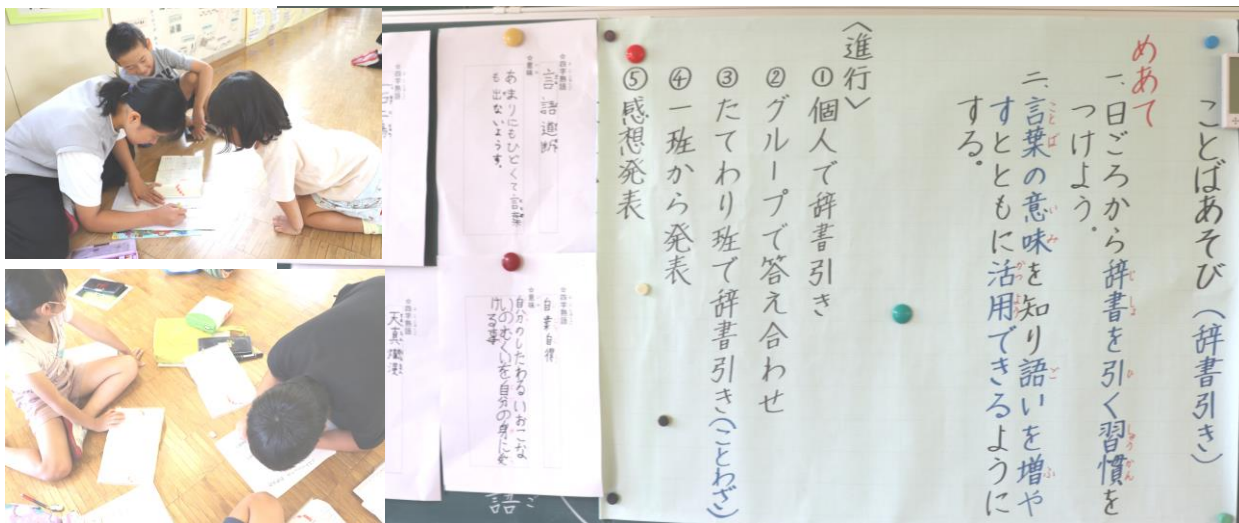 ことばあそび（辞書引き）
めあて
一、日ごろから辞書を引く習慣を
つけよう。
二、言葉の意味を知り語いを増や
すとともに活用できるように
する。
〈進行〉
①個人で辞書引き
②グループで答え合わせ
③たてわり班で辞書引き（ことわざ）
④一班から発表
⑤感想発表
☆四字熟語
言語道断
☆意味
あまりにもひどくて言葉
も出ないようす。
☆四字熟語
自業自得
☆意味
自分のしたわるいおこな
いのむくいを自分の身に受
ける事
☆四字熟語
☆四字熟語
天真爛漫
語